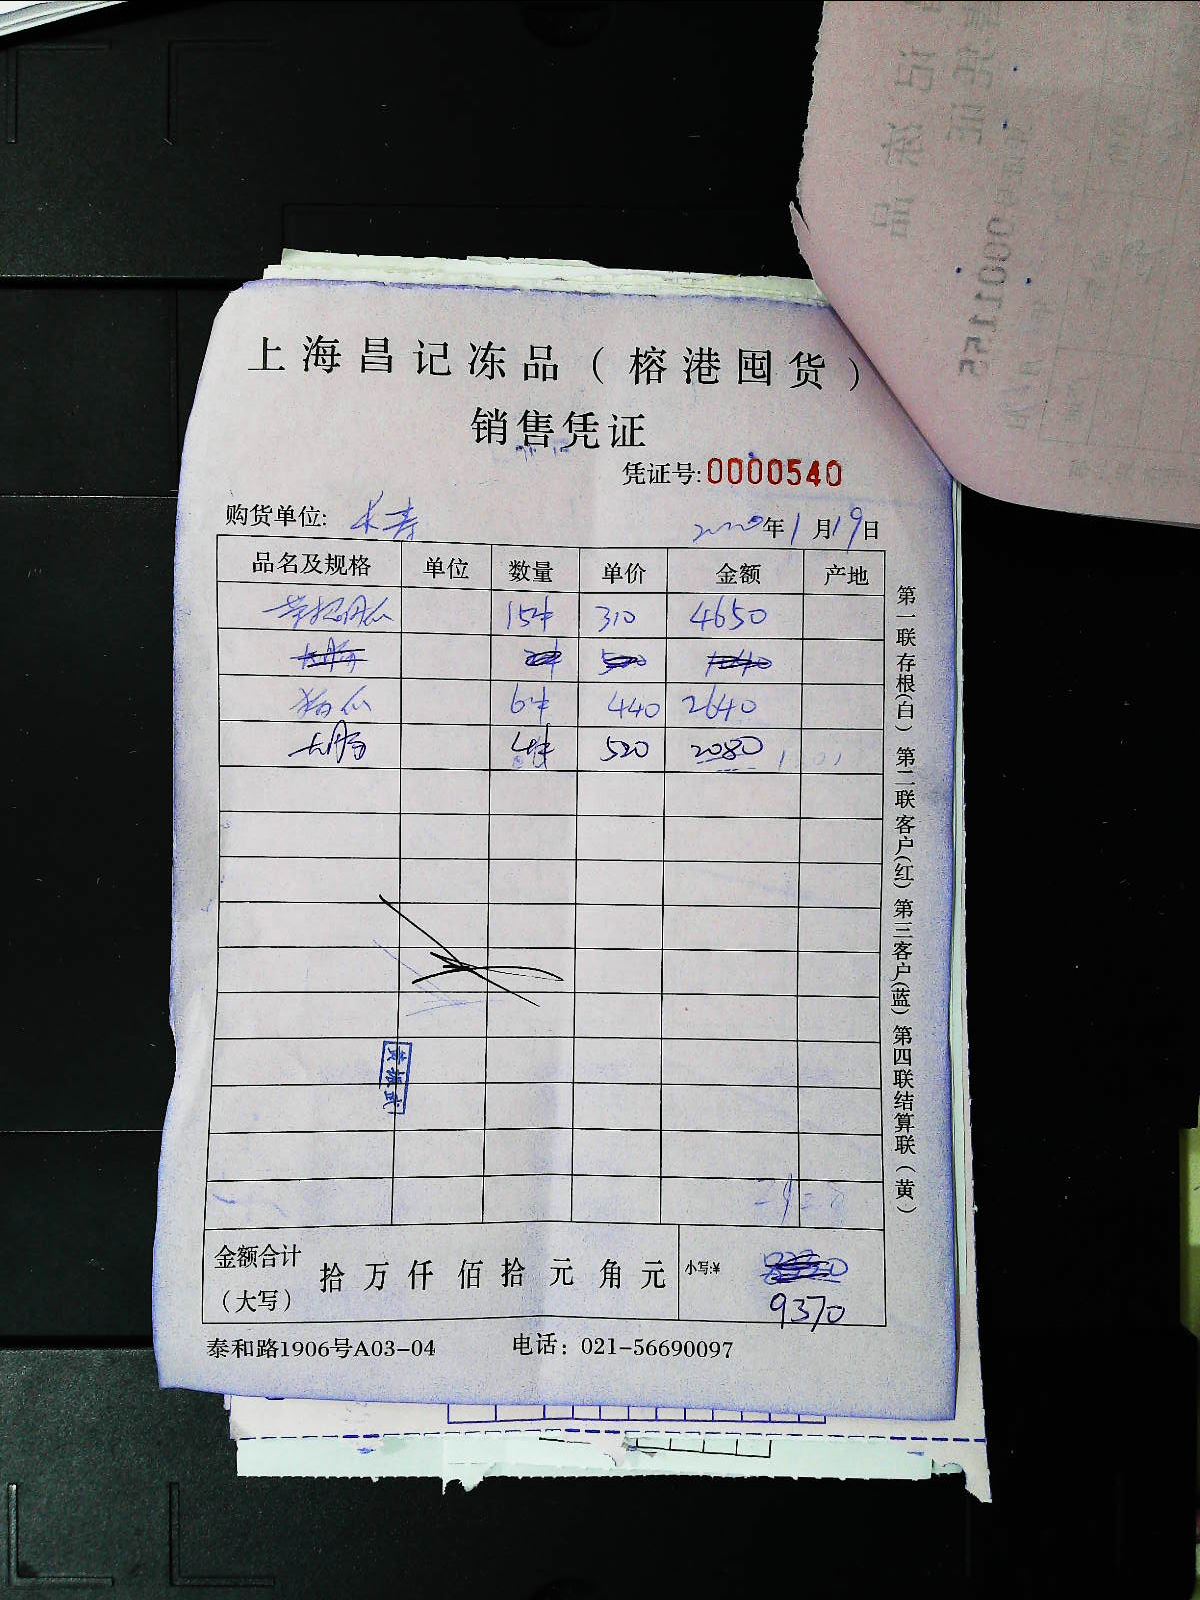 上海昌记冻品（榕港囤货）
销售凭证
凭证号:0000540
购货单位: 长寿 2020年1月19日
品名及规格 单位 数量 单价 金额 产地
15件 310 4650
6件 440 2640
大肠 4件 520 2080
第一联存根(白) 第二联客户(红) 第三客户(蓝) 第四联结算联(黄)
金额合计（大写） 拾万仟佰拾元角元 小写:¥ 9370
泰和路1906号A03-04 电话：021-56690097
0001155